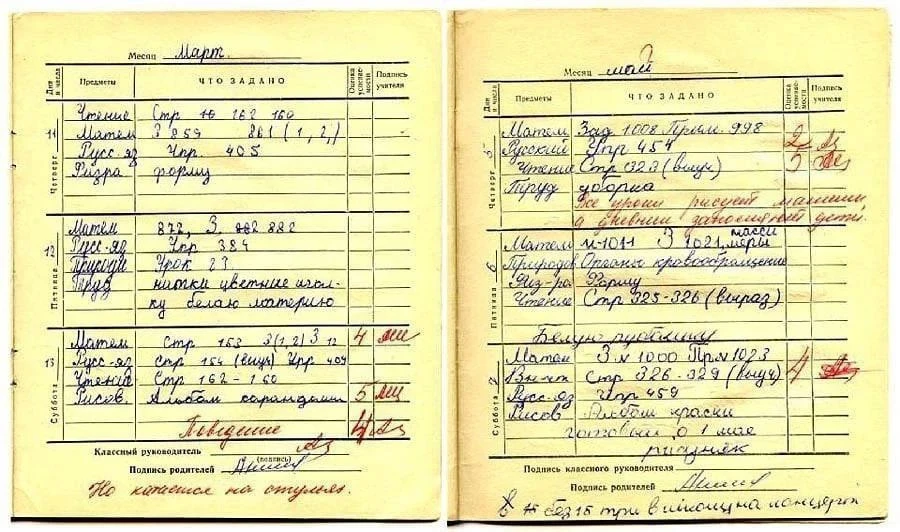 Месяц Март.
Дни и числа
Предметы
ЧТО ЗАДАНО
Оценка успеваемости
Подпись учителя
11
Четверг
Чтение Стр 162 160
Матем З 859 861 (1, 2,)
Русс-яз Упр. 405
Физра форму
12
Пятница
Матем 872, З. 882
Русс-яз Упр 384
Природ Урок 27
Труд нитки цветные игол-
ку белаю материю
13
Суббота
Матем Стр 153 З(1,2) З 12 4
Русс-яз Стр 154 (выуч) Упр 409
Чтение Стр 162-160
Рисов. Альбом карандаши 5
Поведение 4
Классный руководитель
(подпись)
Подпись родителей
Но катается на стульях.
Месяц май
Дни и числа
Предметы
ЧТО ЗАДАНО
Оценка успеваемости
Подпись учителя
5
Четверг
Матем Зад 1008 Прим. 998
Русский Упр 454 2
Чтение Стр 323 (выуч) 5
Труд уборка
Все уроки рисует машины
а дневник заполняют дети.
6
Пятница
Матем N-1011 З 1021, меры массы
Природов Органы кровообращения
Физ-ра Форму
Чтение Стр 325-326 (выраз)
Белую рубашку
7
Суббота
Матем З N 1000 Прм 1023 4
Вн-чт Стр 326-329 (выуч)
Русс-яз Упр 459
Рисов Альбом краски
готовый о 1 мае
рисунок
Подпись классного руководителя
Подпись родителей
без 15 три на концерт